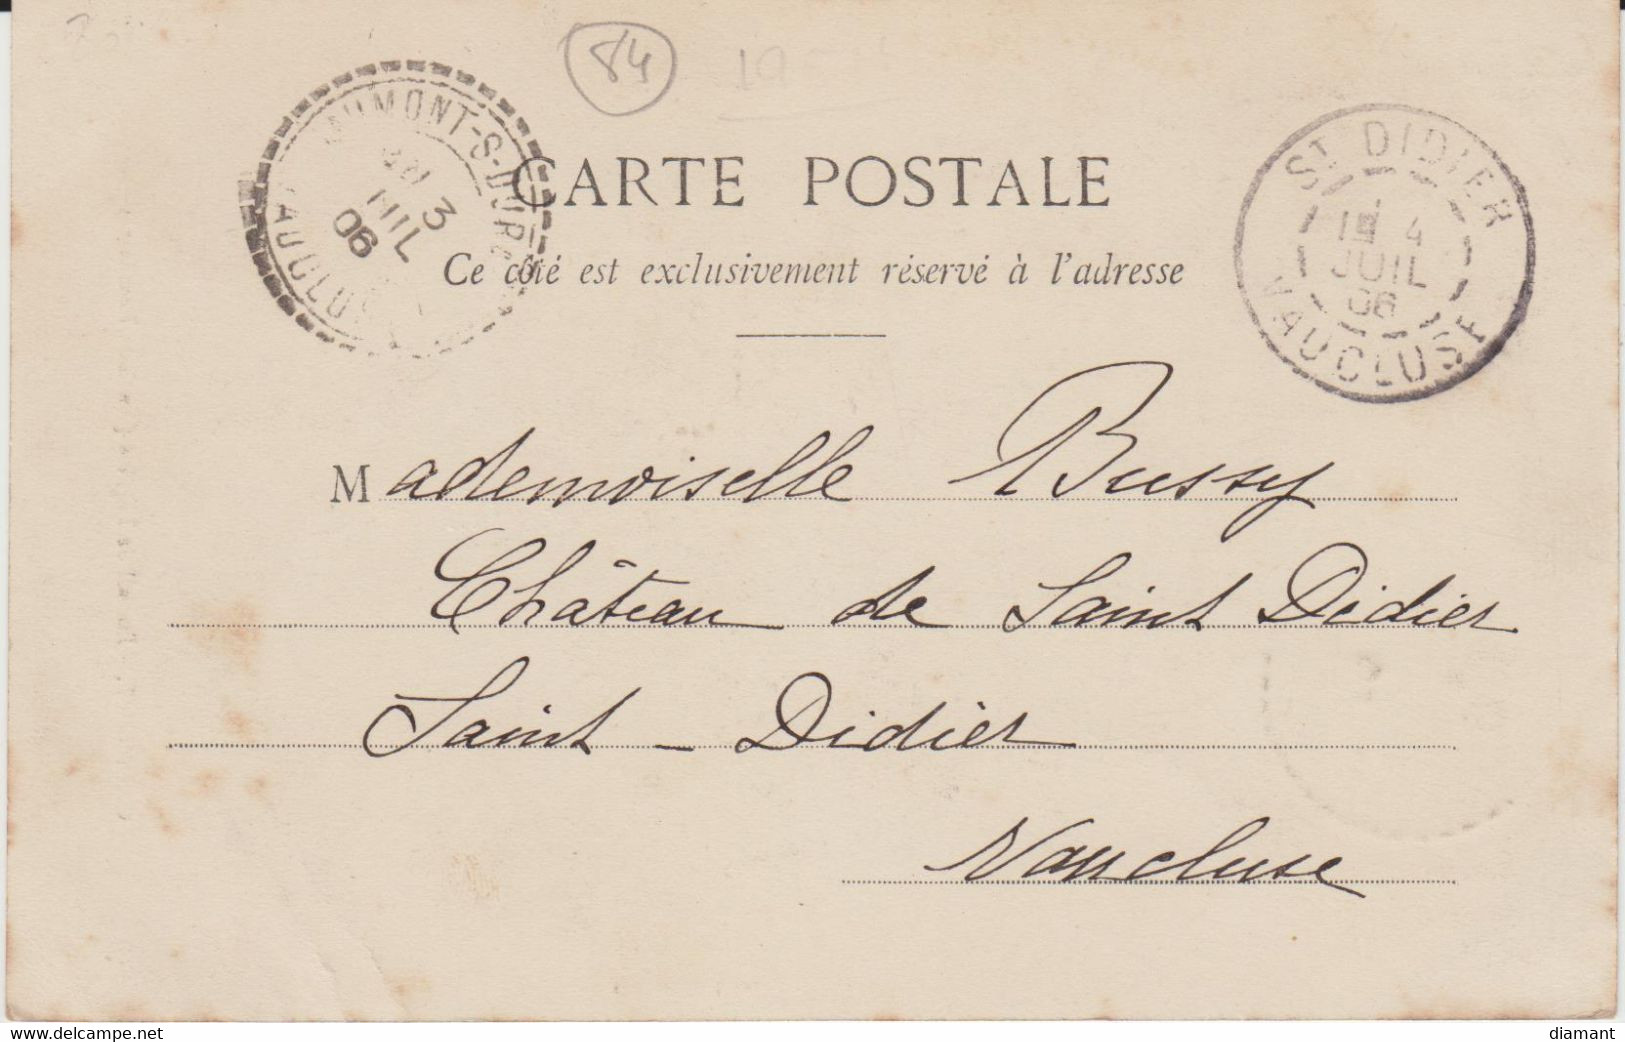 84
19
AUMONT-S-DURE
3
JUIL
06
VAUCLUSE
ST DIDIER
1E 4
JUIL
06
VAUCLUSE
CARTE POSTALE
Ce côté est exclusivement réservé à l'adresse
Mademoiselle Bussy
Château de Saint Didier
Saint - Didier
Vaucluse
www.delcampe.net
diamant